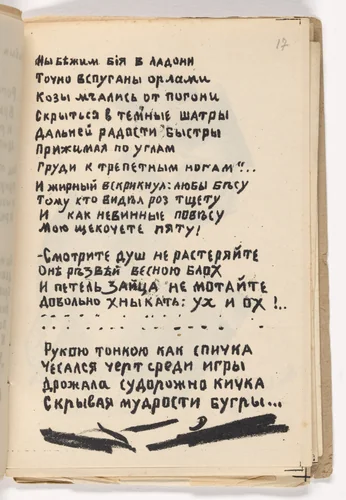 17
Мы бѣжим бія в ладони
Точно вспуганы орлами
Козы мчались от погони
Скрыться в темные шатры
Дальней радости быстры
Прижимая по углам
Груди к трепетным ногам"...
И жирный вскрикнул: любы бѣсу
Тому кто видѣл роз тщету
И как невинные повѣсу
Мою щекочете пяту!
-Смотрите душ не растеряйте
Онѣ рѣзвѣй весною блох
И петель зайца не мотайте
Довольно хныкать: ух и ох!..
Рукою тонкою как спичка
Чесался черт среди игры
Дрожала судорожно кичка
Скрывая мудрости бугры...